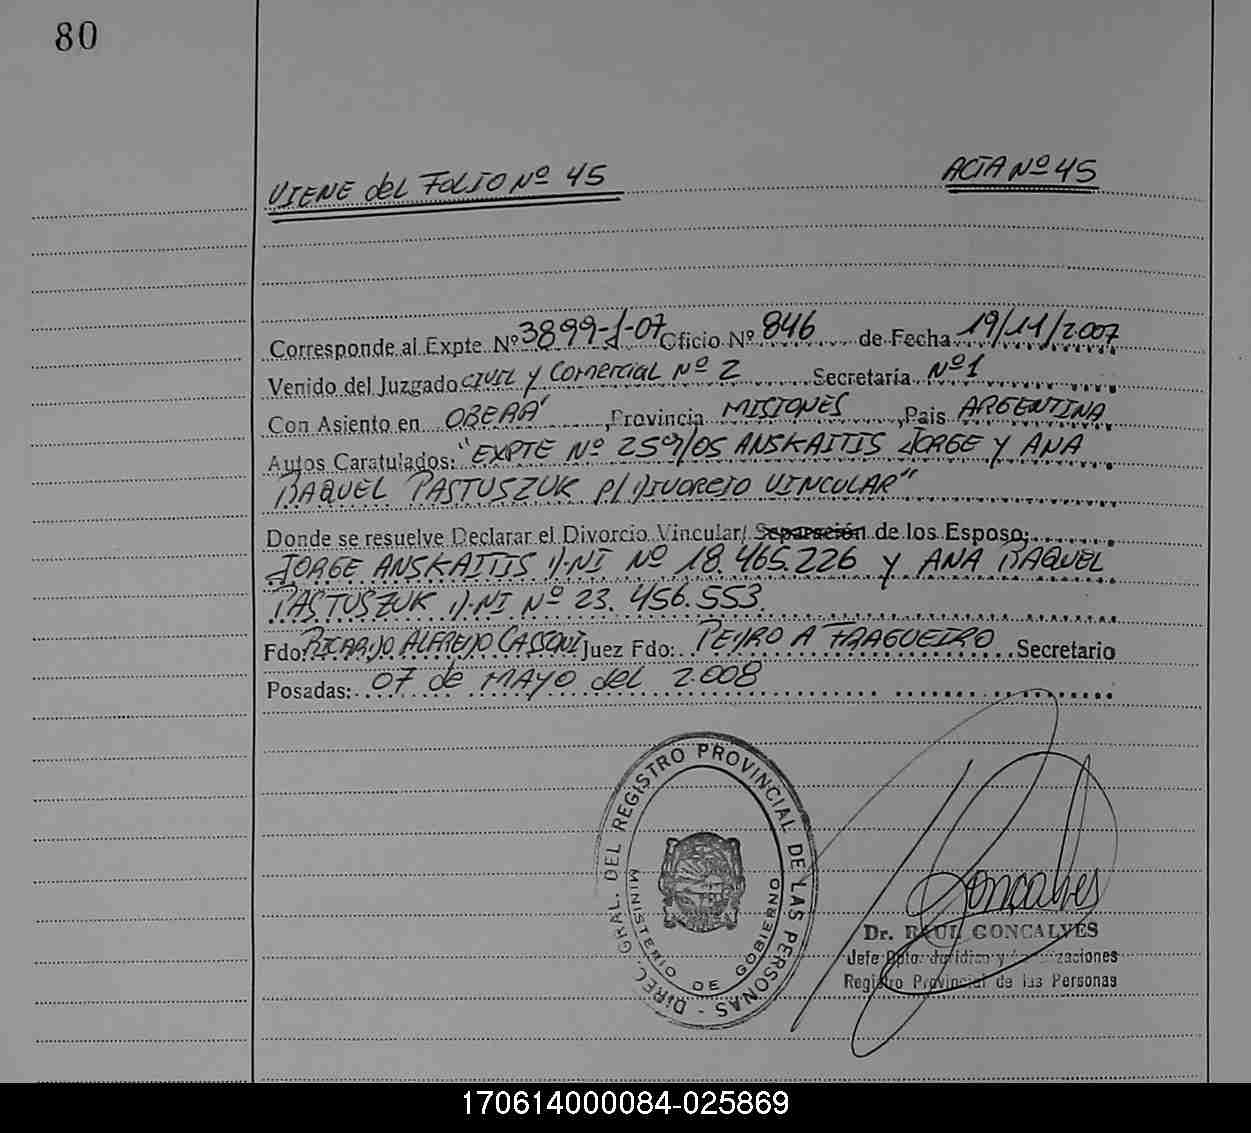 80
VIENE del FOLIO Nº 45 ACTA Nº 45
Corresponde al Expte. Nº 3899-J-07 Oficio Nº 846 de Fecha 19/11/2007
Venido del Juzgado CIVIL y Comercial Nº 2 Secretaría Nº 1
Con Asiento en OBERA' ,Provincia MISIONES ,Pais ARGENTINA
Autos Caratulados: "EXPTE Nº /05 ANSKAITIS JORGE Y ANA
RAQUEL PASTUSZUK P/ DIVORCIO VINCULAR"
Donde se resuelve Declarar el Divorcio Vincular/ Separación de los Esposo;
JORGE ANSKAITIS D.NI Nº 18.465.226 y ANA RAQUEL
PASTUSZUK D.NI Nº 23.456.553.
Fdo: RICARDO ALFREDO CASSONI Juez Fdo: PEDRO A FRAGUEIRO Secretario
Posadas: 07 de MAYO del 2008
DIREC. GRAL. DEL REGISTRO PROVINCIAL DE LAS PERSONAS -
MINISTERIO DE GOBIERNO
Goncalves
Dr. RAUL GONCALVES
Jefe Dpto. Jurídico y
Registro Provincial de las Personas
170614000084-025869